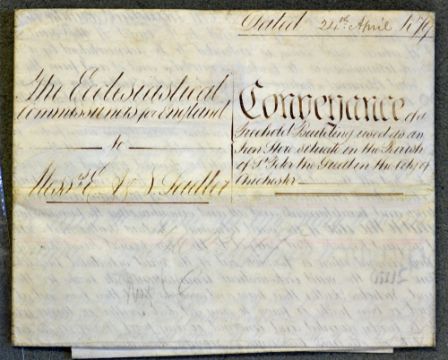 Dated 24th April 1879
The Ecclesiastical
Commissioners for England
to
Messrs E & J
Conveyance of a
Freehold Building used as an
Iron Store situate in the Parish
of St Peter the Great in the City of
Chichester